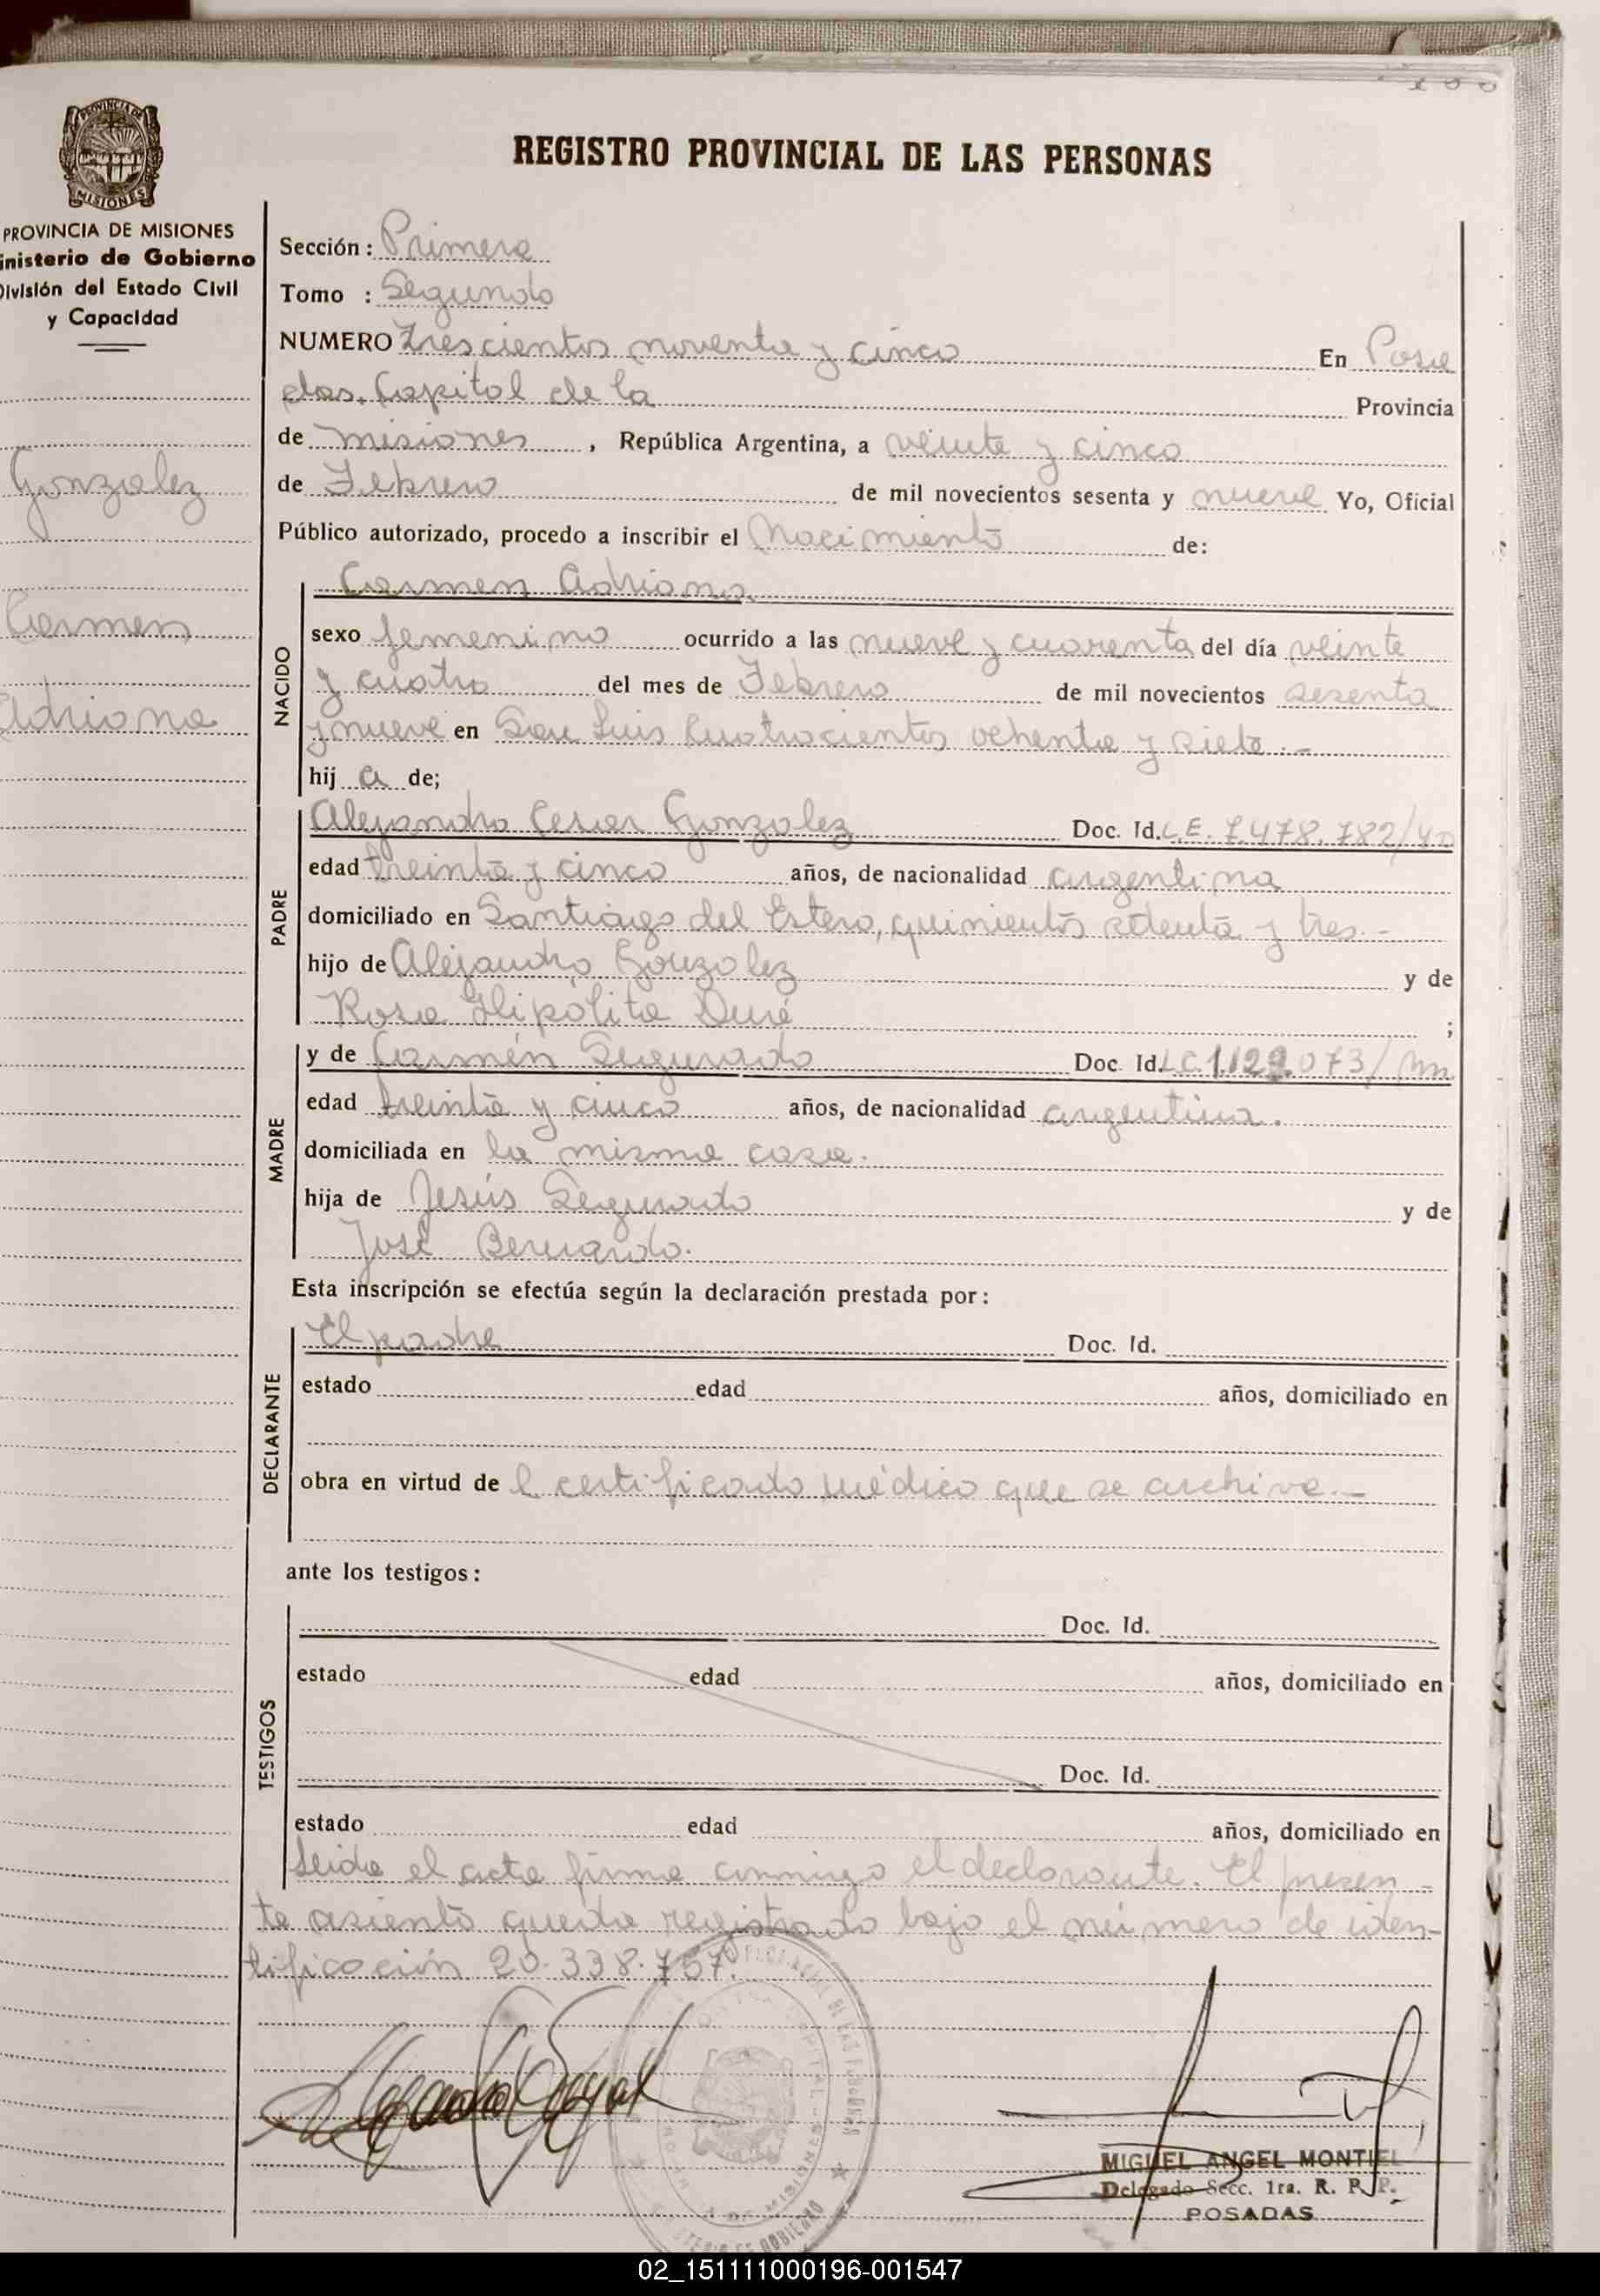 REGISTRO PROVINCIAL DE LAS PERSONAS
MISIONES
PROVINCIA DE MISIONES
inisterio de Gobierno
División del Estado Civil
y Capacidad
Gonzalez
Carmen
Adriana
Sección: Primera
Tomo : Segundo
NUMERO Trescientos noventa y cinco En Posa
das. Capital de la Provincia
de misiones, República Argentina, a veinte y cinco
de Febrero de mil novecientos sesenta y nueve Yo, Oficial
Público autorizado, procedo a inscribir el Nacimiento de:
NACIDO
Carmen Adriana.
sexo femenino ocurrido a las nueve y cuarenta del día veinte
y cuatro del mes de Febrero de mil novecientos sesenta
y nueve en San Luis Cuatrocientos ochenta y siete.-
hij a de;
PADRE
Alejandro Cesar Gonzalez Doc. Id. L.E. 7.478.782/40
edad treinta y cinco años, de nacionalidad argentina
domiciliado en Santiago del Estero, quinientos setenta y tres.-
hijo de Alejandro Gonzalez y de
Rosa Hipólita Duré ;
MADRE
y de Carmén Segurado Doc. Id. L.C. 1.122.073/
edad treinta y cinco años, de nacionalidad argentina.
domiciliada en la misma casa.
hija de Jesús Segurado y de
José Bernardo.
Esta inscripción se efectúa según la declaración prestada por:
DECLARANTE
El padre Doc. Id.
estado edad años, domiciliado en
obra en virtud de l certificado médico que se archiva.-
ante los testigos:
TESTIGOS
Doc. Id.
estado edad años, domiciliado en
Doc. Id.
estado edad años, domiciliado en
Leida el acta firma conmigo el declarante. El presen-
te asiento queda registrado bajo el número de iden-
tificación 20.338.757.
MIGUEL ANGEL MONTIEL
Delegado Secc. 1ra. R. P. P.
POSADAS
02_151111000196-001547